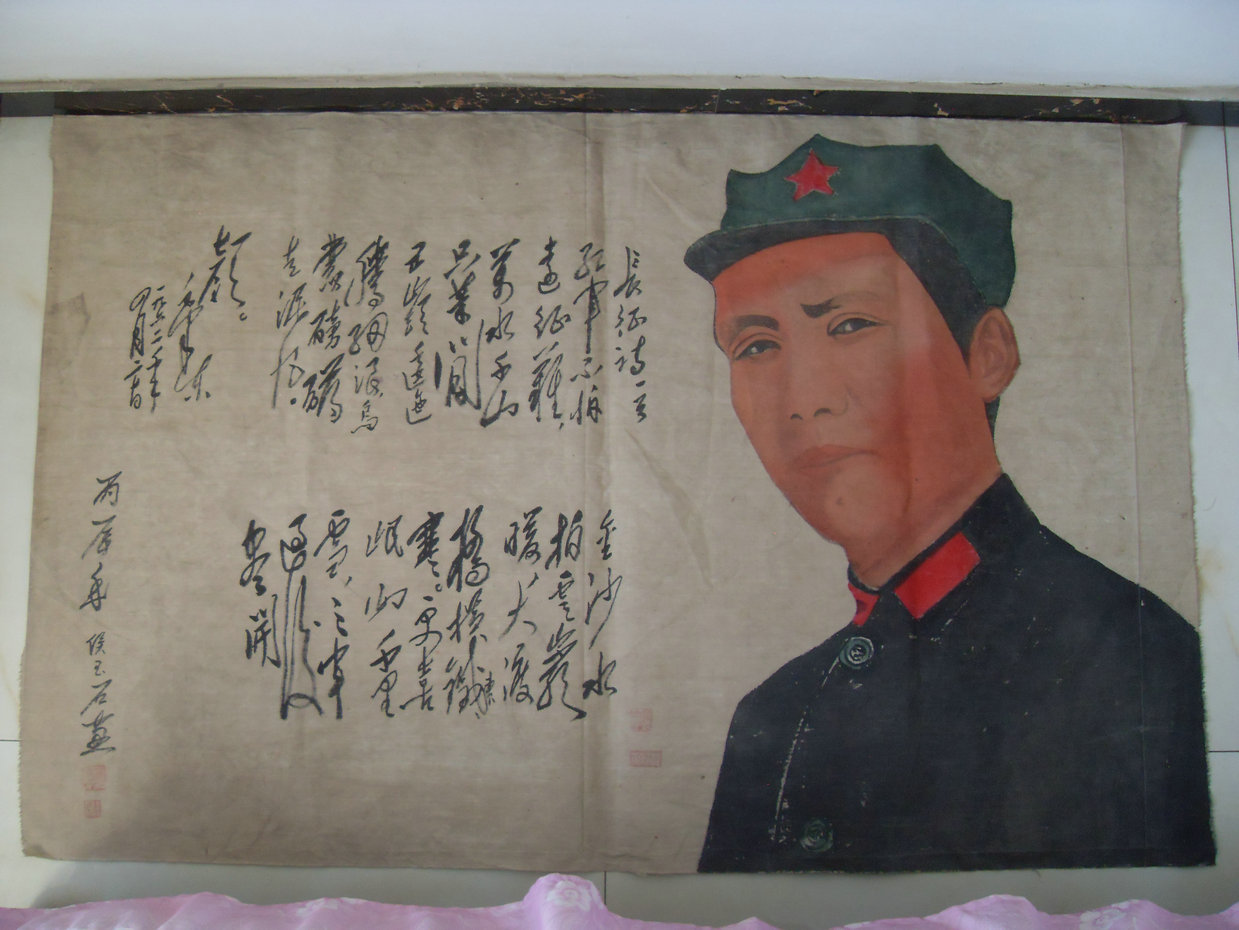 長征詩一首
紅軍不怕
遠征難，
萬水千山
只等閒
五嶺逶迤
騰細浪烏
蒙磅礴
走泥丸。
金沙水
拍雲崖
暖大渡
橋橫鐵索
寒。更喜
岷山千里
雪，三軍
過後
盡開
顏。
毛澤東
一九六二年
四月二十日
丙辰年 侯玉石畫